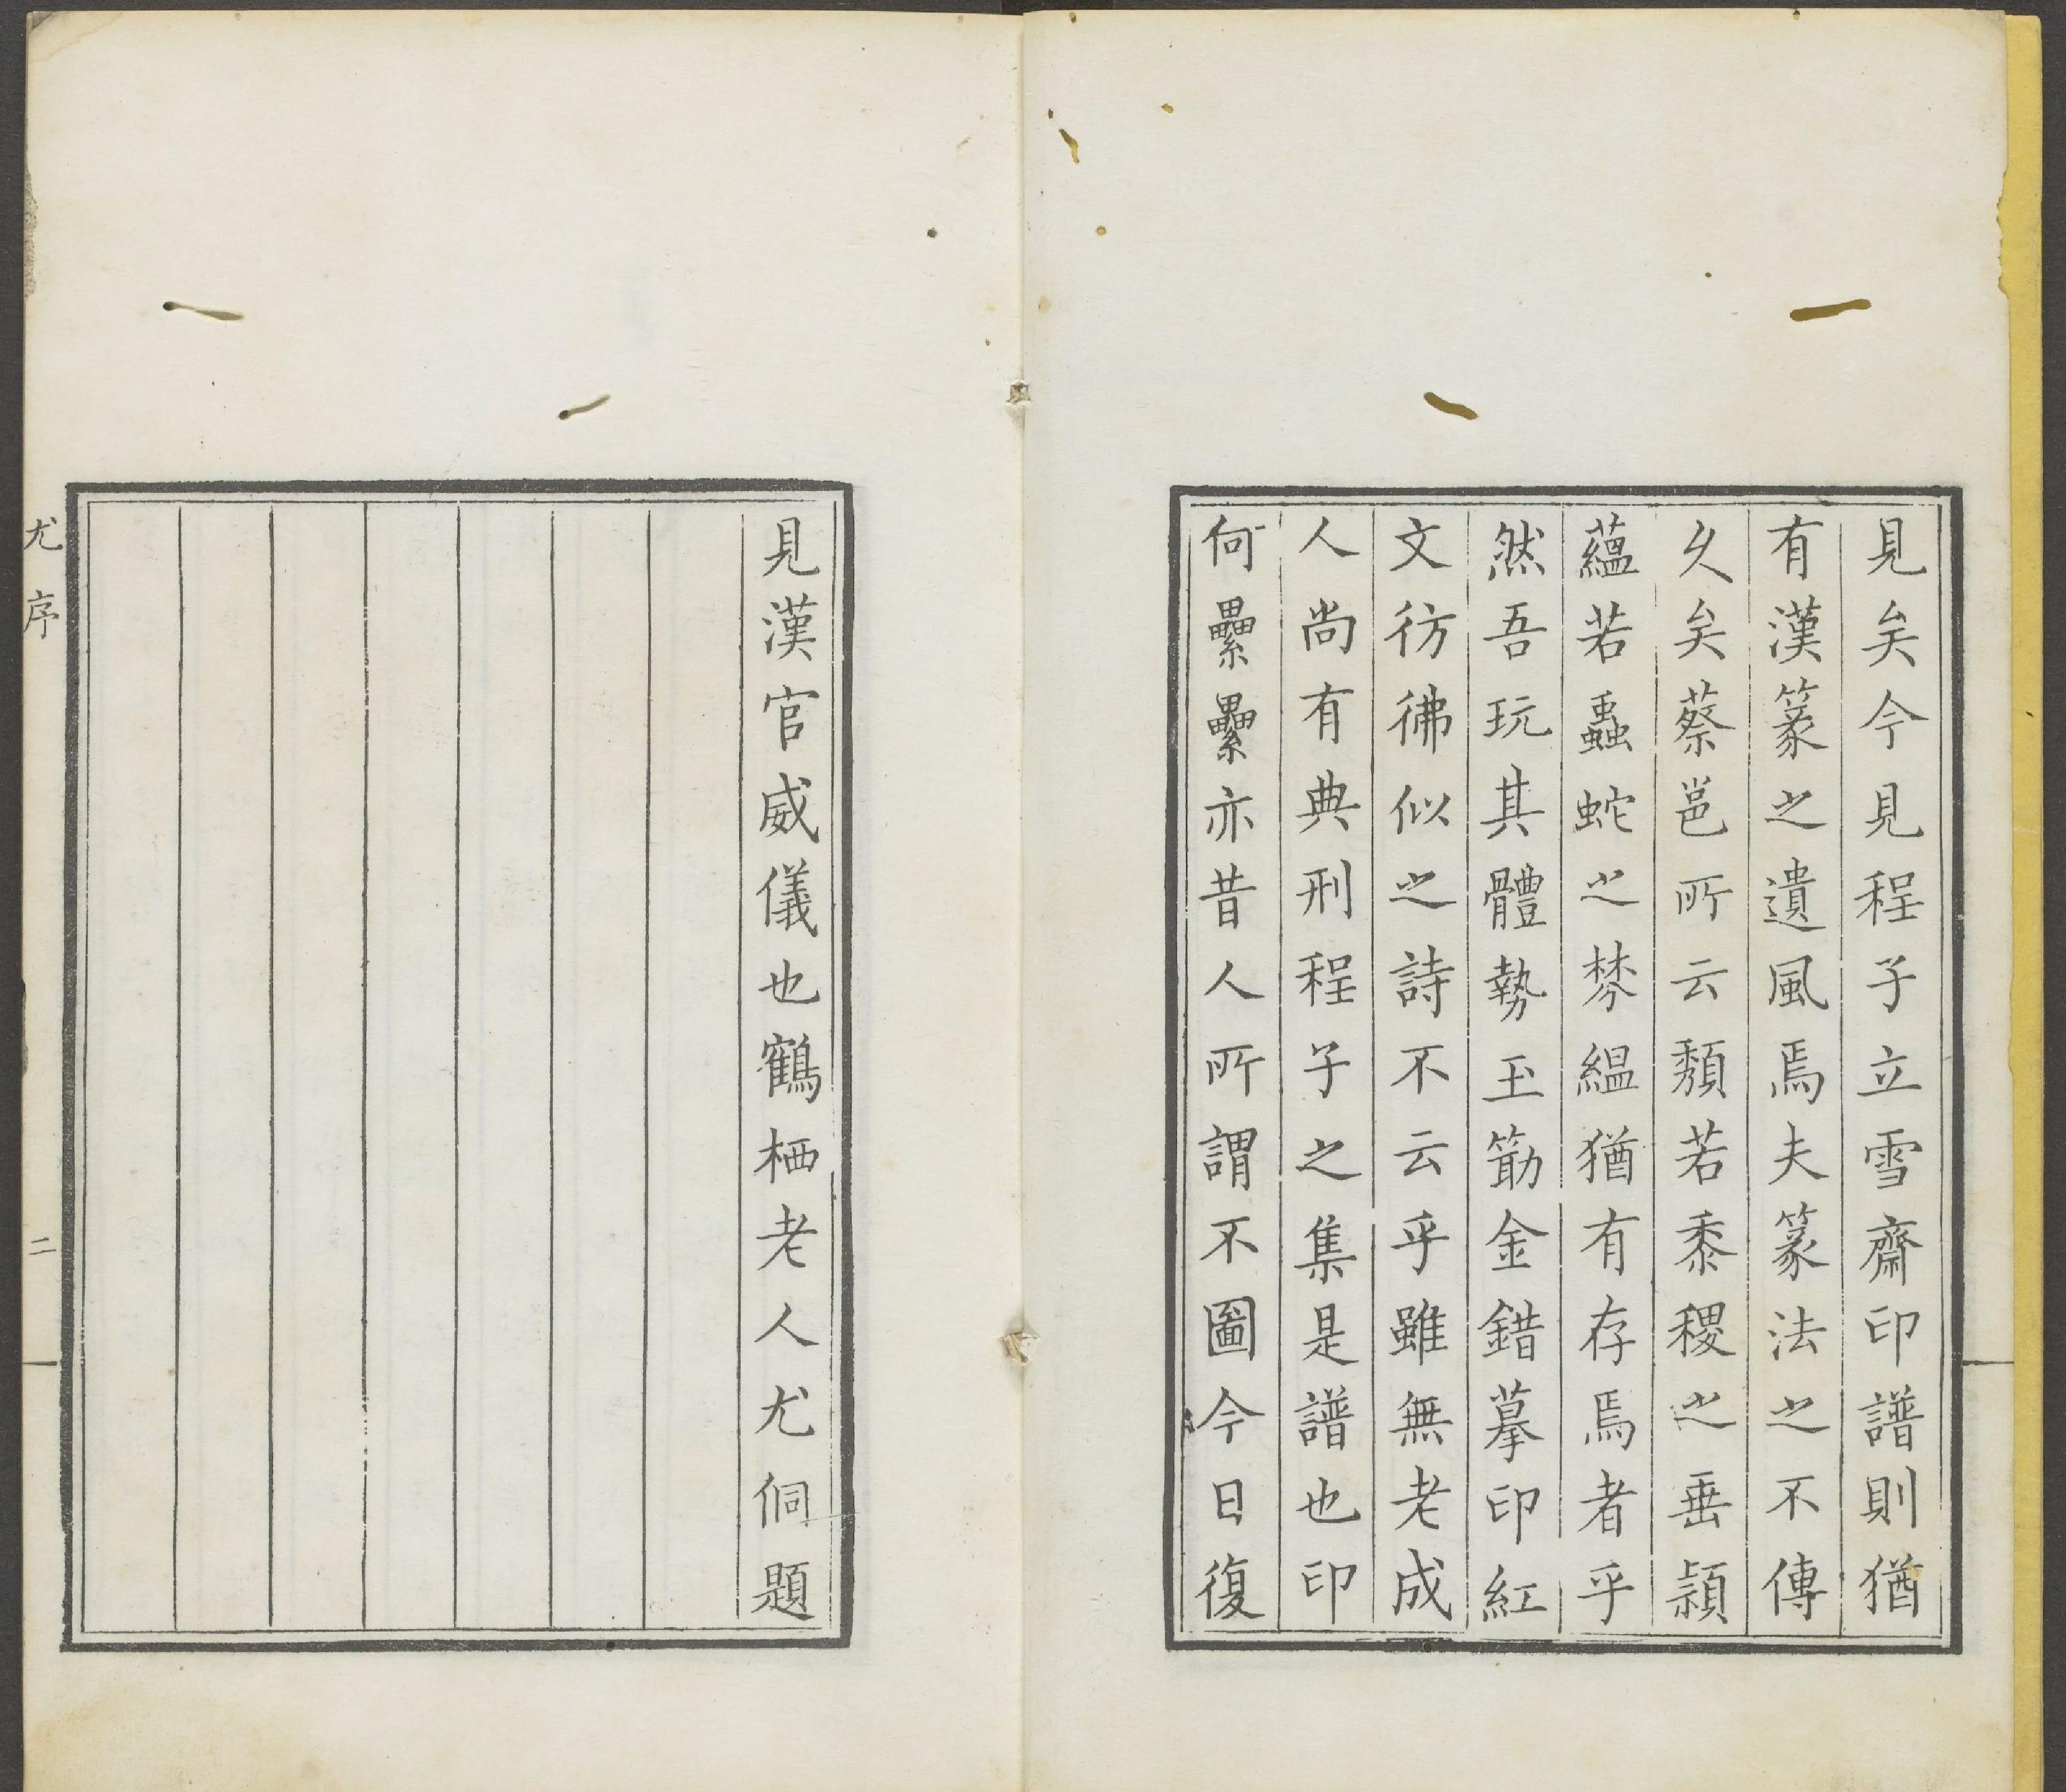 見矣今見程子立雪齋印譜則猶
有漢篆之遺風焉夫篆法之不傳
久矣蔡邕所云頹若黍稷之垂頴
蘊若蟲蛇之棼緼猶有存焉者乎
然吾玩其體勢玉筯金錯摹印紅
文彷彿似之詩不云乎雖無老成
人尚有典刑程子之集是譜也印
何纍纍亦昔人所謂不圖今日復
見漢官威儀也鶴栖老人尤侗題
尤序
二